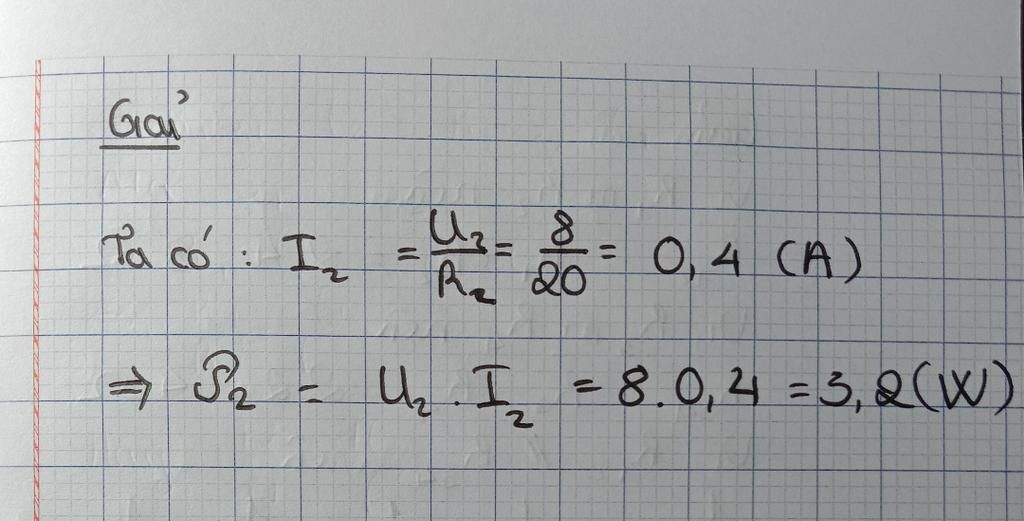 Giải
Ta có : I₂ = U₂/R₂ = 8/20 = 0,4 (A)
⇒ P₂ = U₂ . I₂ = 8.0,4 = 3,2 (W)